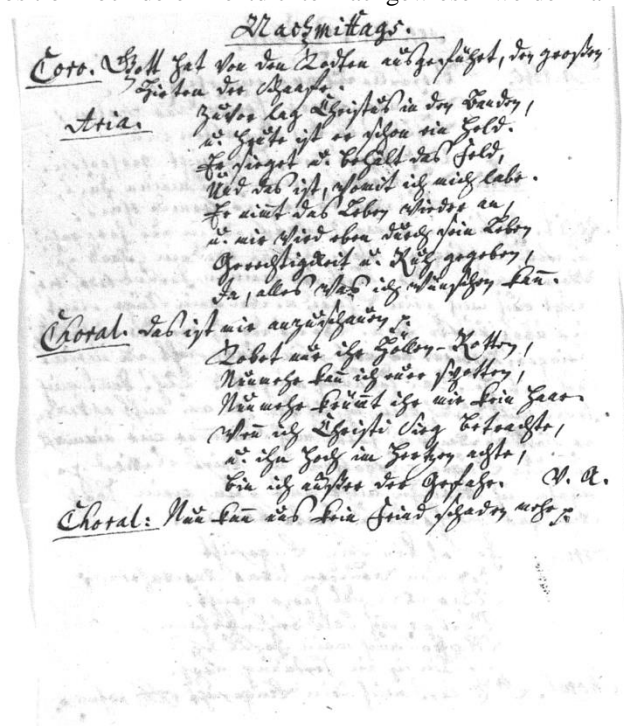 Nachmittags.
Coro. Gott hat von den Todten ausgeführet, den großen
Hirten der Schaafe.
Aria. Zuvor lag Christus in den Banden,
u. heute ist er schon ein Held.
Er sieget u. behält das Feld,
Und das ist, womit ich mich labe.
Er nimt das Leben wieder an,
u. mir wird eben durch sein Leben
Gerechtigkeit u. Ruh gegeben,
Ja, alles was ich wünschen kan.
Choral. Das ist mir anzuschauen
Tobet nur ihr Höllen-Rotten,
Nunmehr kan ich eurer spotten,
Nunmehr krümmt ihr mir kein Haar.
Wenn ich Christi Sieg betrachte,
u. ihn hoch im Hertzen achte,
bin ich außer der Gefahr. V. A.
Choral: Nun kan uns kein Feind schaden mehr